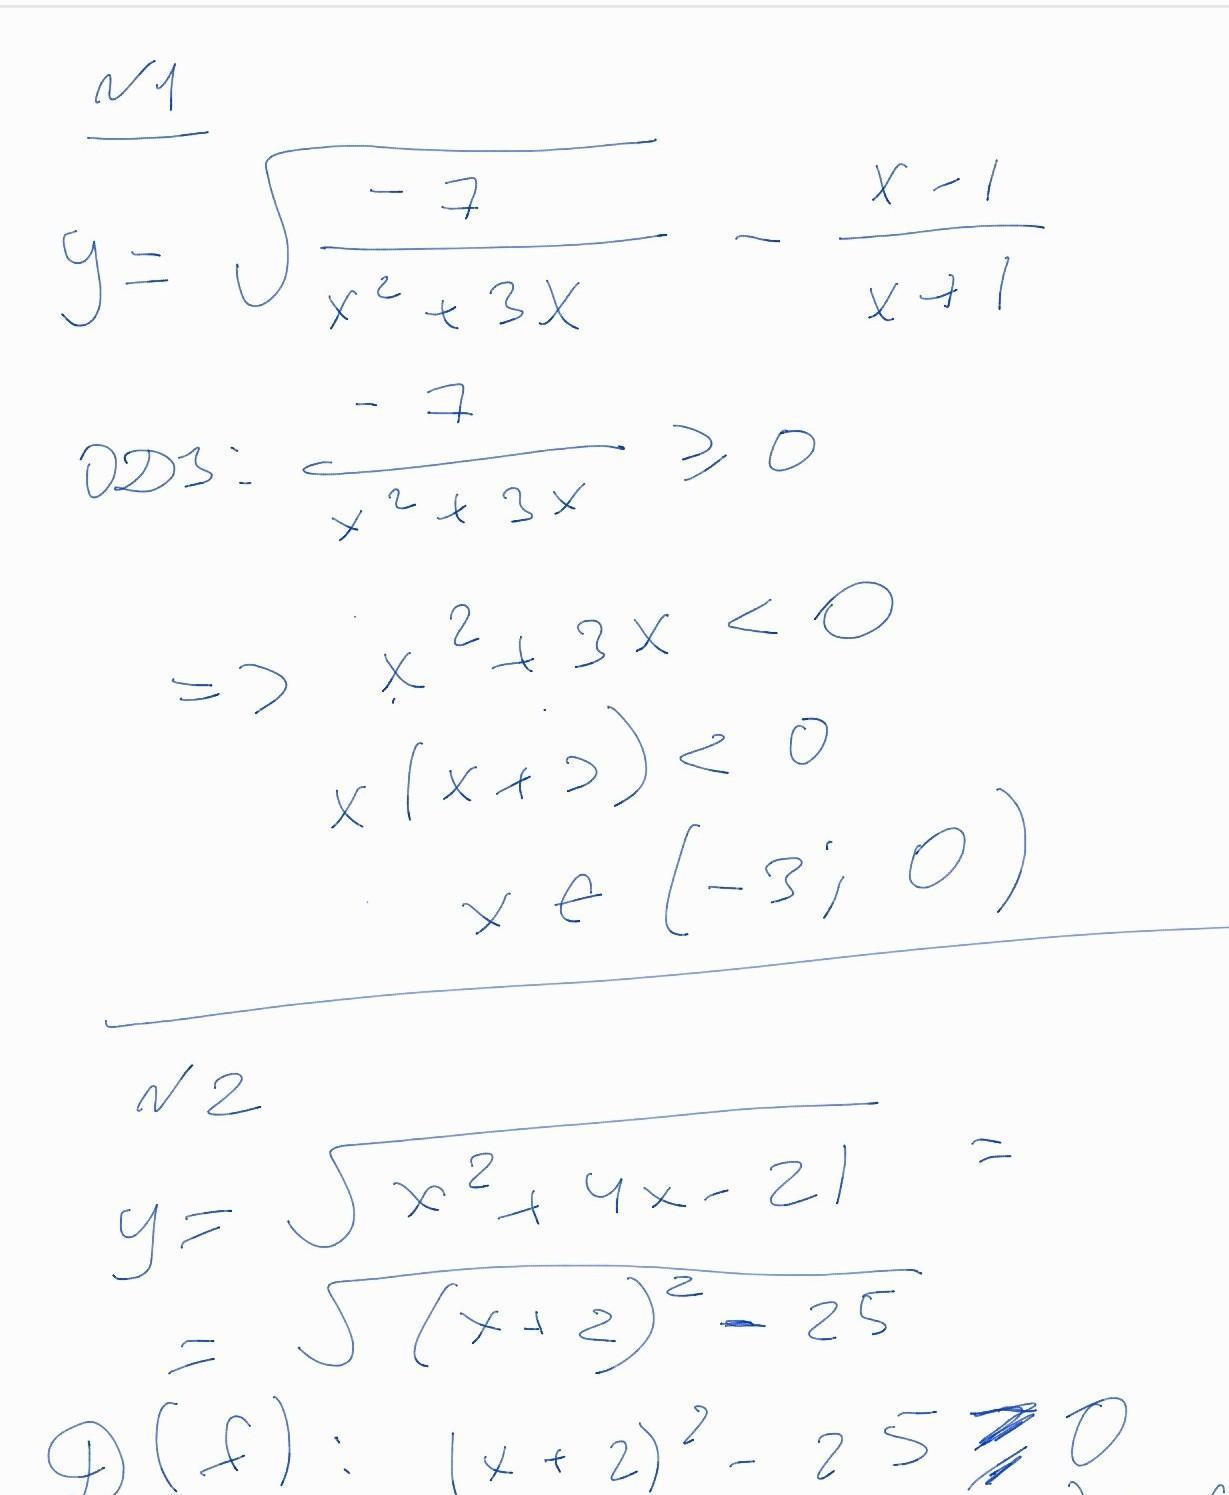 №1
y = √(-7 / (x² + 3x)) - (x - 1) / (x + 1)
ОДЗ: -7 / (x² + 3x) ⩾ 0
=> x² + 3x < 0
x(x + 3) < 0
x ∈ (-3; 0)
№2
y = √(x² + 4x - 21) =
= √((x + 2)² - 25)
D(f): (x + 2)² - 25 ⩾ 0